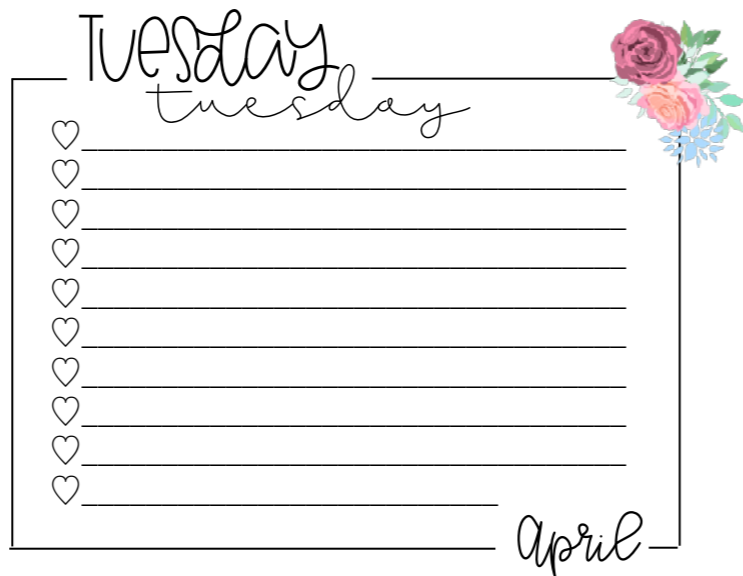 Tuesday
tuesday
april